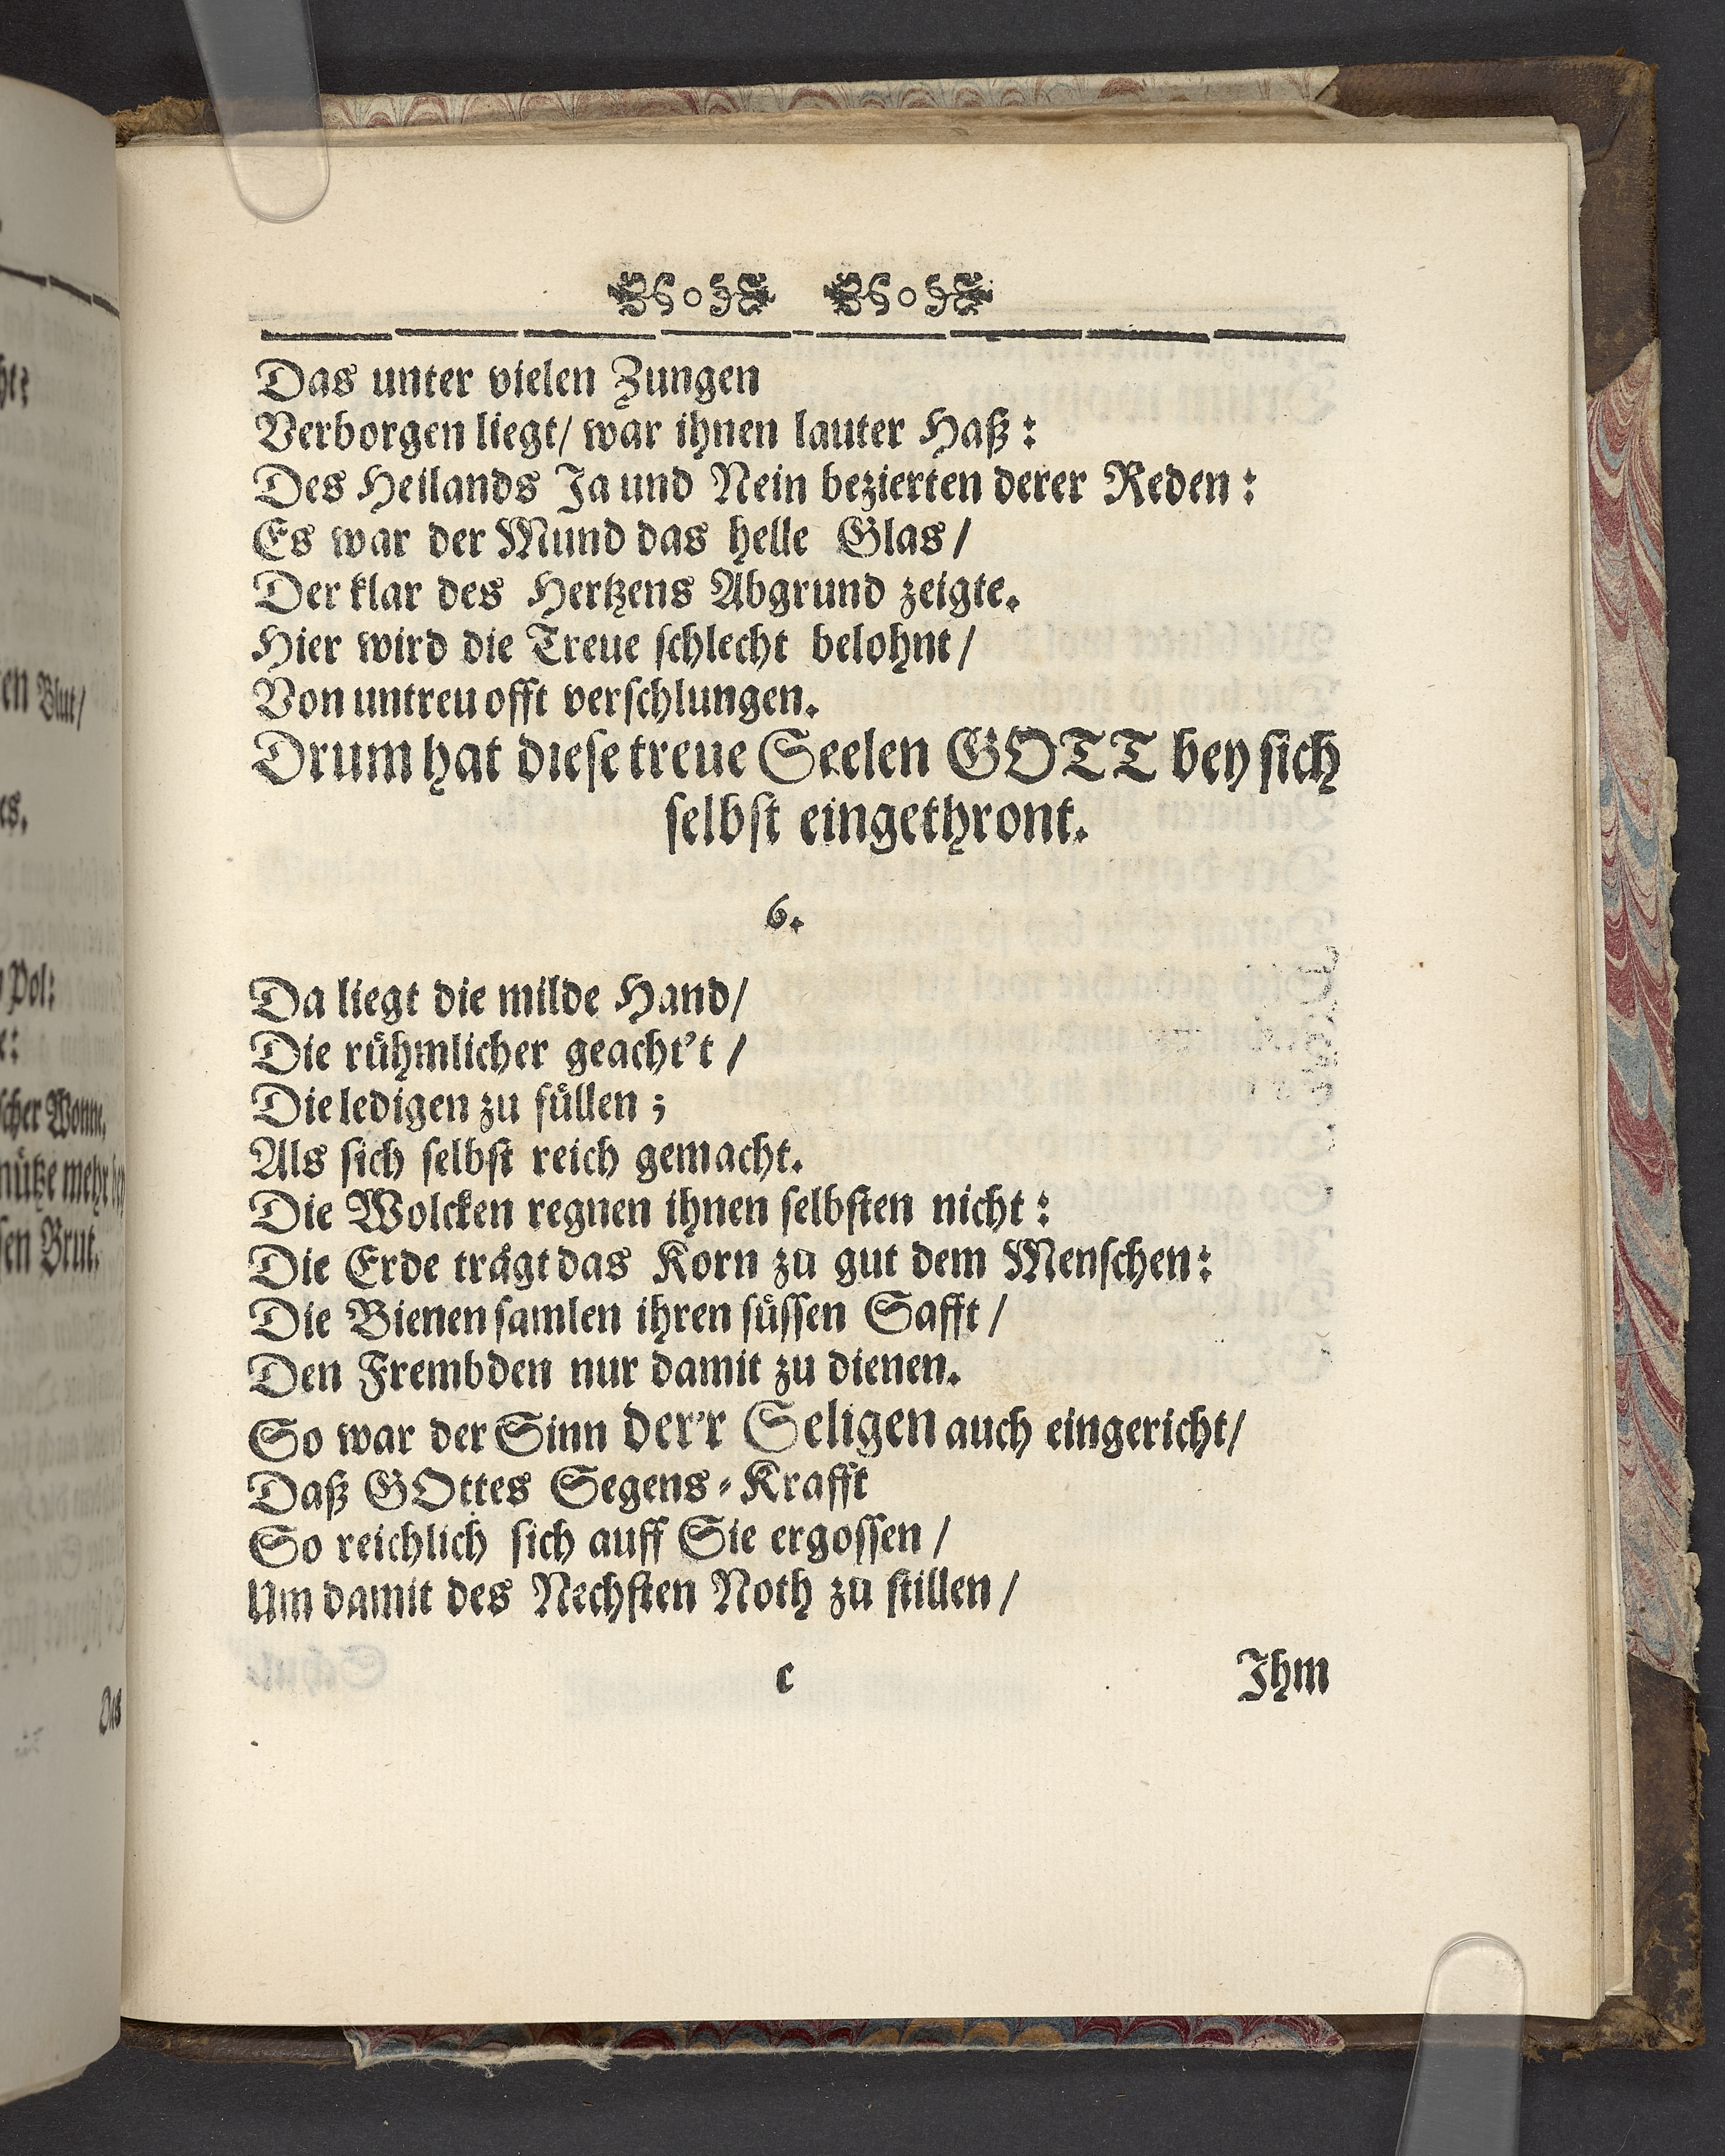 Das unter vielen Zungen
Verborgen liegt/ war ihnen lauter Haß:
Des Heilands Ja und Nein bezierten derer Reden:
Es war der Mund das helle Glas/
Der klar des Hertzens Abgrund zeigte.
Hier wird die Treue ſchlecht belohnt/
Von untreu offt verſchlungen.
Drum hat dieſe treue Seelen GOTT bey ſich
ſelbſt eingethront.
6.
Da liegt die milde Hand/
Die ruͤhmlicher geacht't/
Die ledigen zu fuͤllen;
Als ſich ſelbſt reich gemacht.
Die Wolcken regnen ihnen ſelbſten nicht:
Die Erde traͤgt das Korn zu gut dem Menſchen:
Die Bienen ſamlen ihren ſuͤſſen Safft/
Den Frembden nur damit zu dienen.
So war der Sinn der'r Seligen auch eingericht/
Daß GOttes Segens-Krafft
So reichlich ſich auff Sie ergoſſen/
Um damit des Nechſten Noth zu ſtillen/
c Ihm
en Blut/
Pol:
ſcher Wonne,
nuͤtze mehr
ſen Brut.
Das